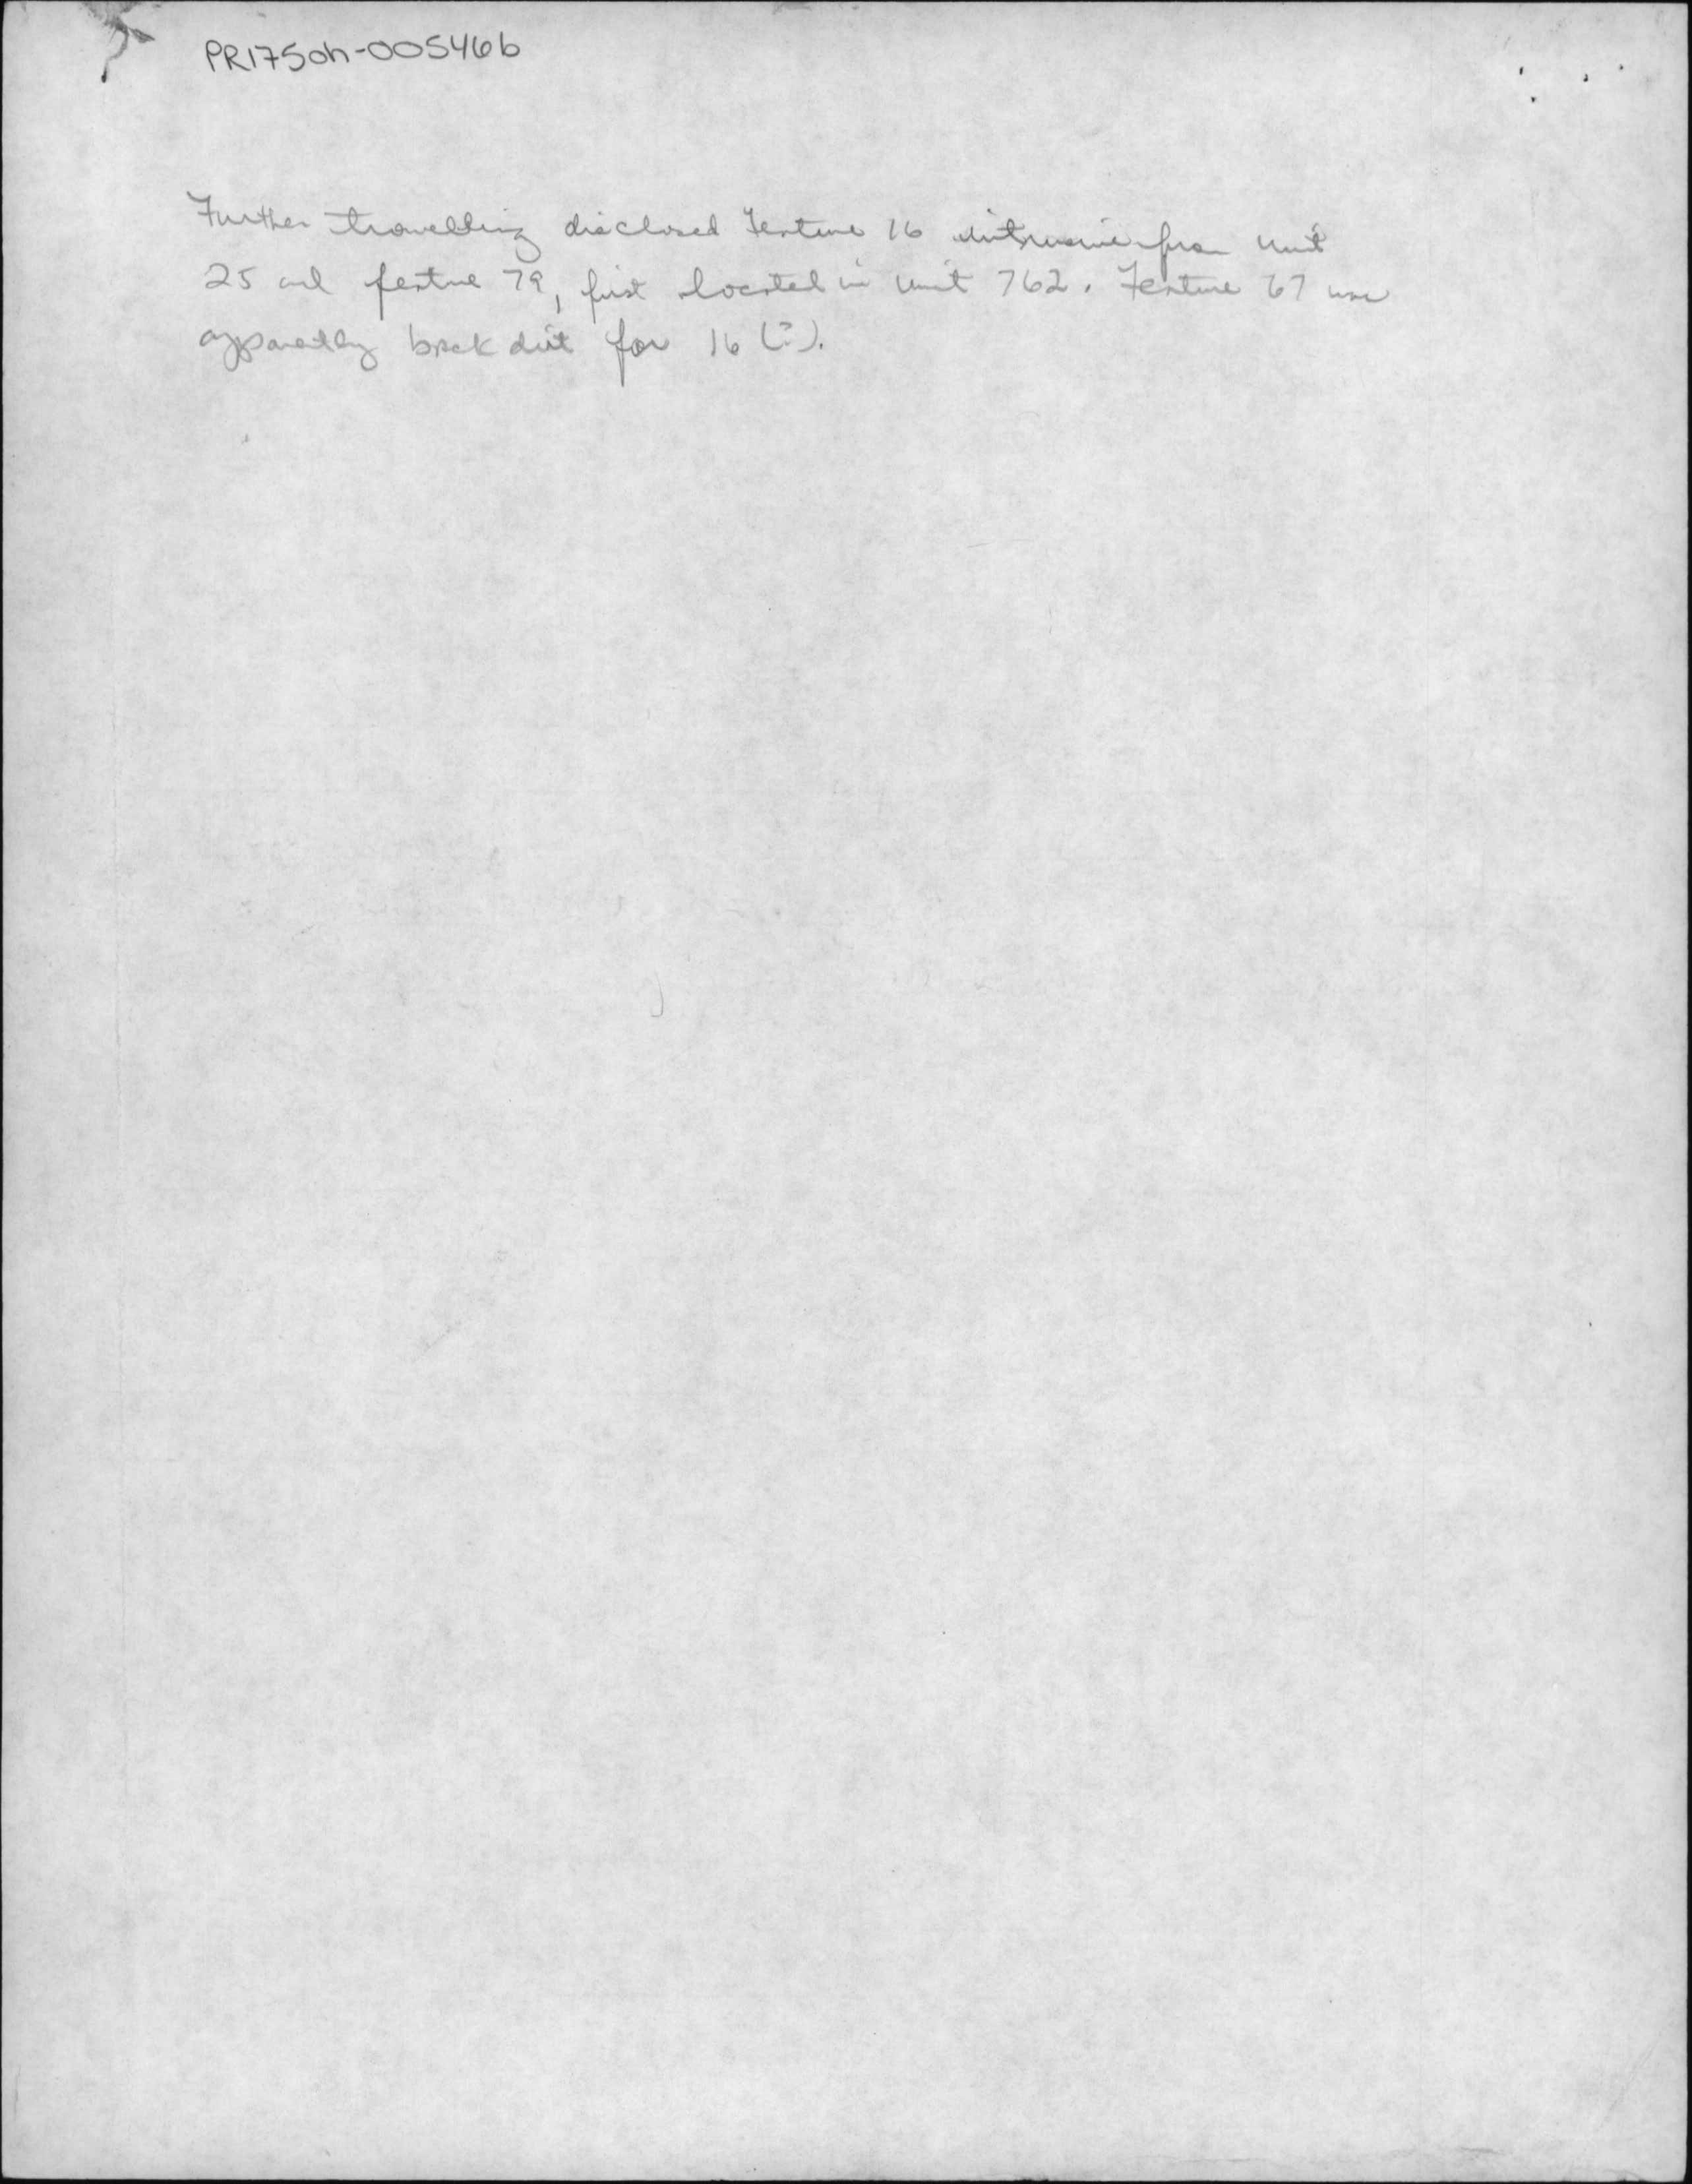 PR175oh-005466
Further trowelling disclosed Feature 16 intrusive from Unit
25 and feature 79, first located in Unit 762. Feature 67 was
apparently back dirt for 16 (?).